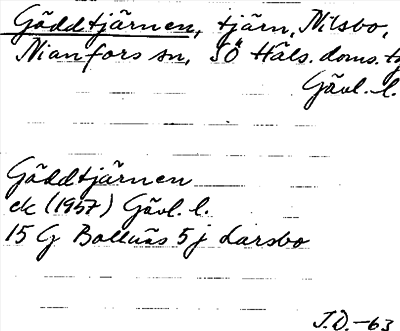 Gäddtjärnen, tjärn, Nilsbo,
Nianfors sn, SÖ Häls. doms. tg
Gävl. l.
Gäddtjärnen
ek (1957) Gävl. l.
15 G Bollnäs 5 j Larsbo
J.D. -63